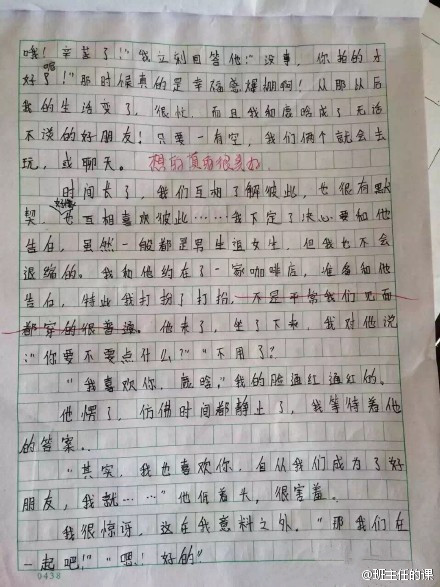 哦!辛苦了!"我立刻回答他:"没事,你拍的才
好了!嘿"那时候真的是幸福感爆棚啊!从那以后
我的生活变了,很忙,而且我和鹿晗成了无话
不说的好朋友!只要一有空,我们俩个就会去
玩,或聊天。想的真有很美好
时间长了,我们互相了解彼此,也很有默
契,好像也互相喜欢彼此……我下定了决心要和他
告白,虽然一般都是男生追女生,但我也不会
退缩的。我和他约在了一家咖啡店,准备和他
告白,特此我打扮了打扮,不是平常我们见面
都穿的很普通。他来了,坐了下来,我对他说
:"你要不要点什么?""不用了?
"我喜欢你,鹿晗。"我的脸通红通红的。
他愣了,仿佛时间都静止了,我等待着他
的答案。
"其实,我也喜欢你,自从我们成为了好
朋友,我就……"他低着头,很害羞。
我很惊讶,这在我意料之外。"那我们在
一起吧!""嗯!好的"
0438
@班主任的课